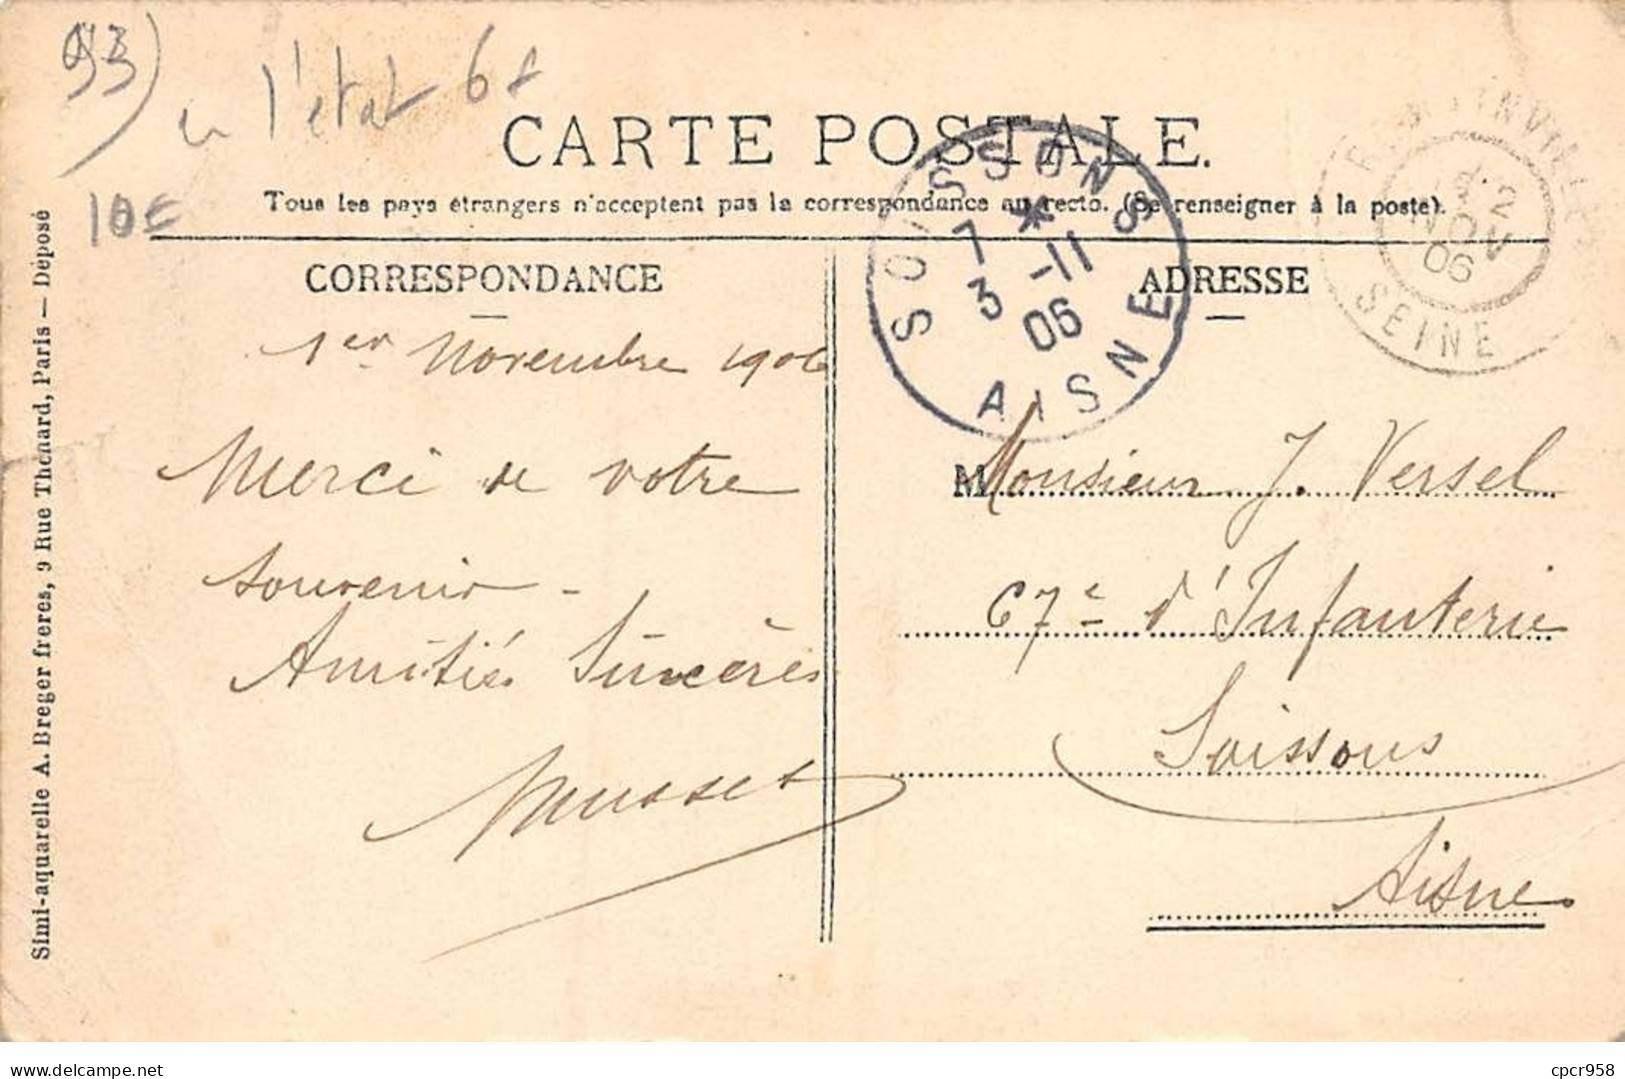 93)
en l'état 6f
10€
CARTE POSTALE.
Tous les pays étrangers n'acceptent pas la correspondance au recto. (Se renseigner à la poste).
CORRESPONDANCE
ADRESSE
SOISSONS
7 *
3 -11
06
AISNE
NOV
06
SEINE
1er Novembre 1906
Merci de votre
souvenir -
Amitiés Sincères
Musset
Monsieur J. Versel
67e d'Infanterie
Soissons
Aisne.
Simi-aquarelle A. Breger freres, 9 Rue Thenard, Paris — Déposé
delcampe.net
cpcr958